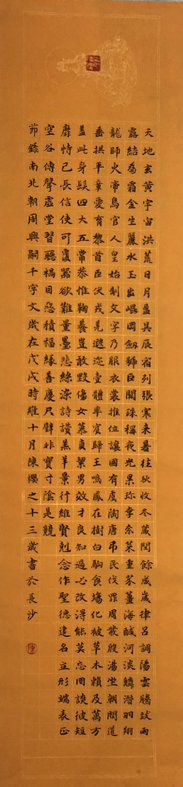 天地玄黃宇宙洪荒日月盈昃辰宿列張寒来暑往秋收冬藏閏餘成歲律吕調陽雲騰致雨
露結為霜金生麗水玉出崑岡劍號巨闕珠稱夜光果珍李柰菜重芥薑海鹹河淡鱗潛羽翔
龍師火帝鳥官人皇始制文字乃服衣裳推位讓國有虞陶唐弔民伐罪周發殷湯坐朝問道
垂拱平章愛育黎首臣伏戎羌遐迩壹體率賓歸王鳴鳳在樹白駒食場化被草木賴及萬方
蓋此身髮四大五常恭惟鞠養豈敢毀傷女慕貞潔男效才良知過必改得能莫忘罔談彼短
靡恃己長信使可覆器欲難量墨悲絲染詩讚羔羊景行維賢剋念作聖德建名立形端表正
空谷傳聲虛堂習聽禍因惡積福緣善慶尺璧非寶寸陰是競
節錄南北朝周興嗣千字文歲在戊戌時維十月陳之十三歲書於長沙